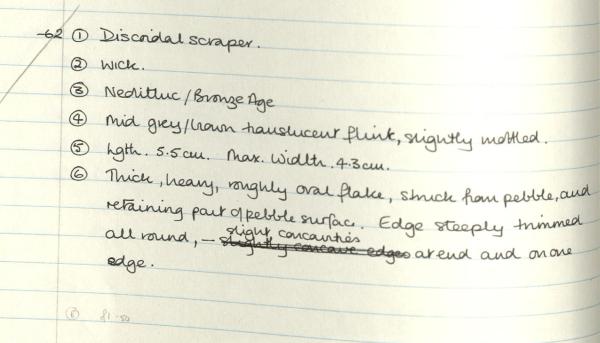 -62 ① Discoidal scraper.
② Wick.
③ Neolithic/Bronze Age
④ Mid grey/brown translucent flint, slightly mottled.
⑤ Lgth. 5.5cm. Max. Width. 4.3cm.
⑥ Thick, heavy, roughly oval flake, struck from pebble, and
retaining part of pebble surface. Edge steeply trimmed
slight concavities
all round, — slightly concave edges at end and on one
edge.